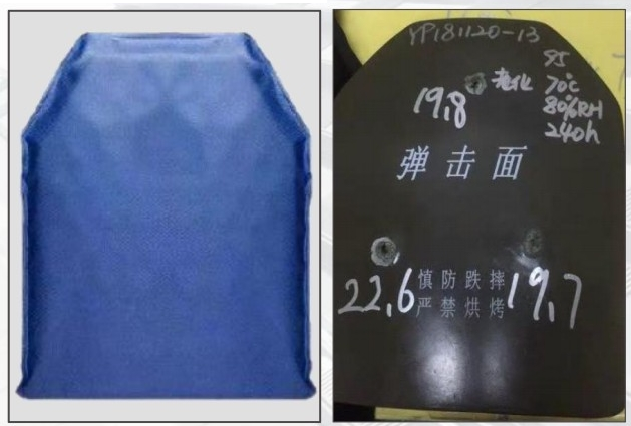 YP181120-13
95
老化 70℃
80%RH
240h
19,8
弹击面
22,6
慎防跌摔
严禁烘烤
19,7